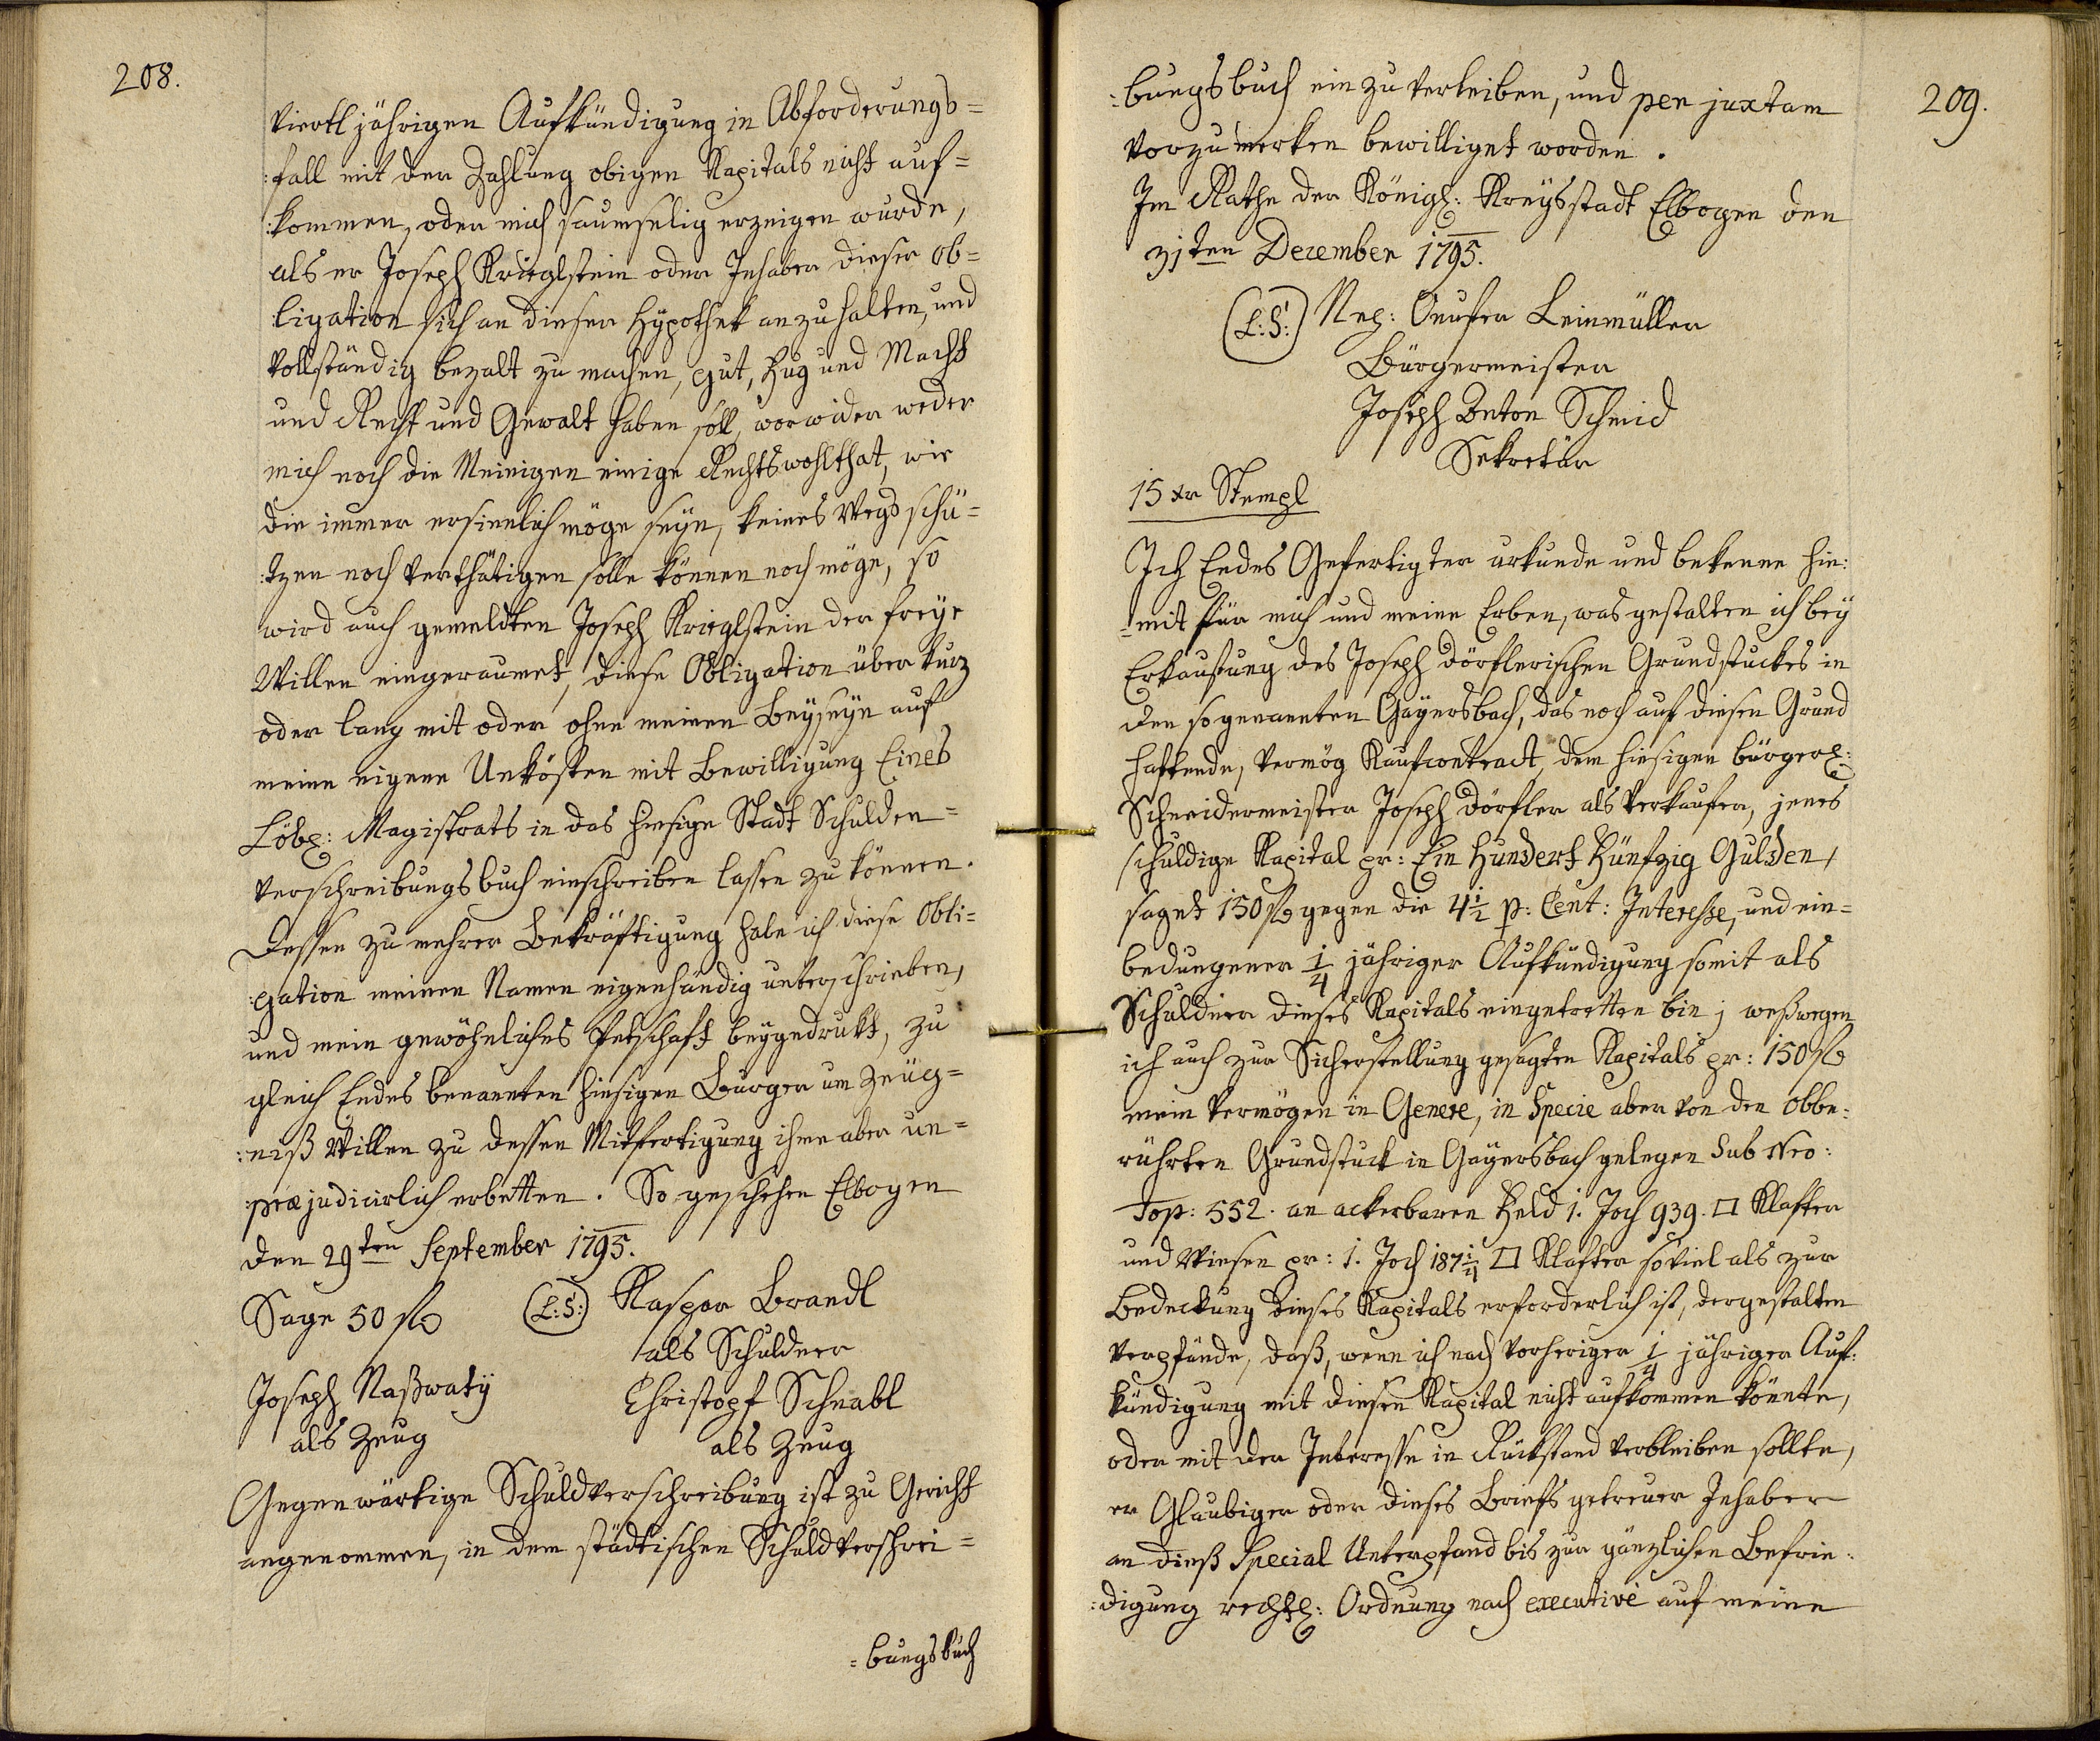 208.
viertl jährigen Aufkündigung in Abforderungs=
:fall mit der Zahlung obigen Kapitals nicht auf=
:kommen, oder mich saumselig erzeigen wurde,
als er Joseph Krieglstein oder Inhaber dieser Ob=
ligation sich an dieser Hypothek anzuhalten, und
vollständig bezalt zu machen, gut, Fug und Macht
und Recht und Gewalt haben soll, worwider weder
mich noch die Meinigen einige Rechtswohlthat, wie
die immer ersinnlich möge seyn, keines Wegs schü=
:tzen noch verthätigen solle können noch möge, so
wird auch gemeldten Joseph Krieglstein der freye
Willen eingeraumet, diese Obligation über kurz
oder lang mit oder ohne meinen Beyseyn auf
meine eigene Unkösten mit Bewilligung Eines
Löbl: Magistrats in das hiesige Stadt Schulden=
verschreibungsbuch einschreiben lassen zu können.
Dessen zu mehrer Bekräftigung habe ich diese Obli=
:gation meinen Namen eigenhändig unterschrieben,
und mein gewöhnliches Petschaft beygedrukt, zu
gleich Endes benannten hiesigen Burger um Zeüg=
:niß Willen zu dessen Mitfertigung ihme aber un=
:præjudicirlich erbetten. So geschehen Elbogen
den 29ten September 1795.
Sage 50 fl (L:S:) Kaspar Brandl
als Schuldner
Joseph Naßwaty Christopf Schnabl
als Zeug als Zeug
Gegenwärtige Schuldverschreibung ist zu Gericht
angenommen, in dem städtischen Schuldverschrei=
=bungsbuch
209.
:bungsbuch einzuverleiben, und per juxtam
vorzumerken bewilliget worden.
Im Rathe der Königl: Kreysstadt Elbogen den
31ten Dezember 1795.
(L:S:) Leinmüller
Bürgermeister
Joseph Anton Schmid
Sekretär
15 xr Stempl
Ich Endes Gefertigter urkunde und bekenne hie:
=mit für mich und meine Erben, was gestalten ich bey
Erkaufung des Joseph Dörflerischen Grundstuckes in
den sogenannten Gäyersbach, das noch auf diesen Grund
haftende, vermög Kaufcontract, dem hiesigen bürgerl:
Schneidermeister Joseph Dörfler als Verkaufer, jenes
schuldige Kapital pr: Ein Hundert Fünfzig Gulden,
saget 150 fl gegen die 4 1/2 p: Cent: Interesse, und ein=
bedungener 1/4 jähriger Aufkündigung somit als
Schuldner dieses Kapitals eingetretten bin; weßwegen
ich auch zur Sicherstellung gesagten Kapitals pr: 150 fl
mein Vermögen in Genere, in Specie aber von den obbe:
rührten Grundstuck in Gäyersbach gelegen Sub Nro:
Top: 552. an ackerbaren Feld 1. Joch 939. □ Klafter
und Wiesen pr: 1. Joch 187 1/4 □ Klafter soviel als zur
Bedeckung dieses Kapitals erforderlich ist, dergestalten
verpfände, daß, wenn ich nach vorheriger 1/4 jähriger Auf:
kündigung mit diesen Kapital nicht aufkommen könnte,
oder mit der Interesse in Rückstand verbleiben sollte,
er Glaubiger oder dieses Briefs getreuer Inhaber
an dieß Special Unterpfand bis zur gänzlichen Befrie:
:digung rechtl: Ordnung nach executivè auf meine